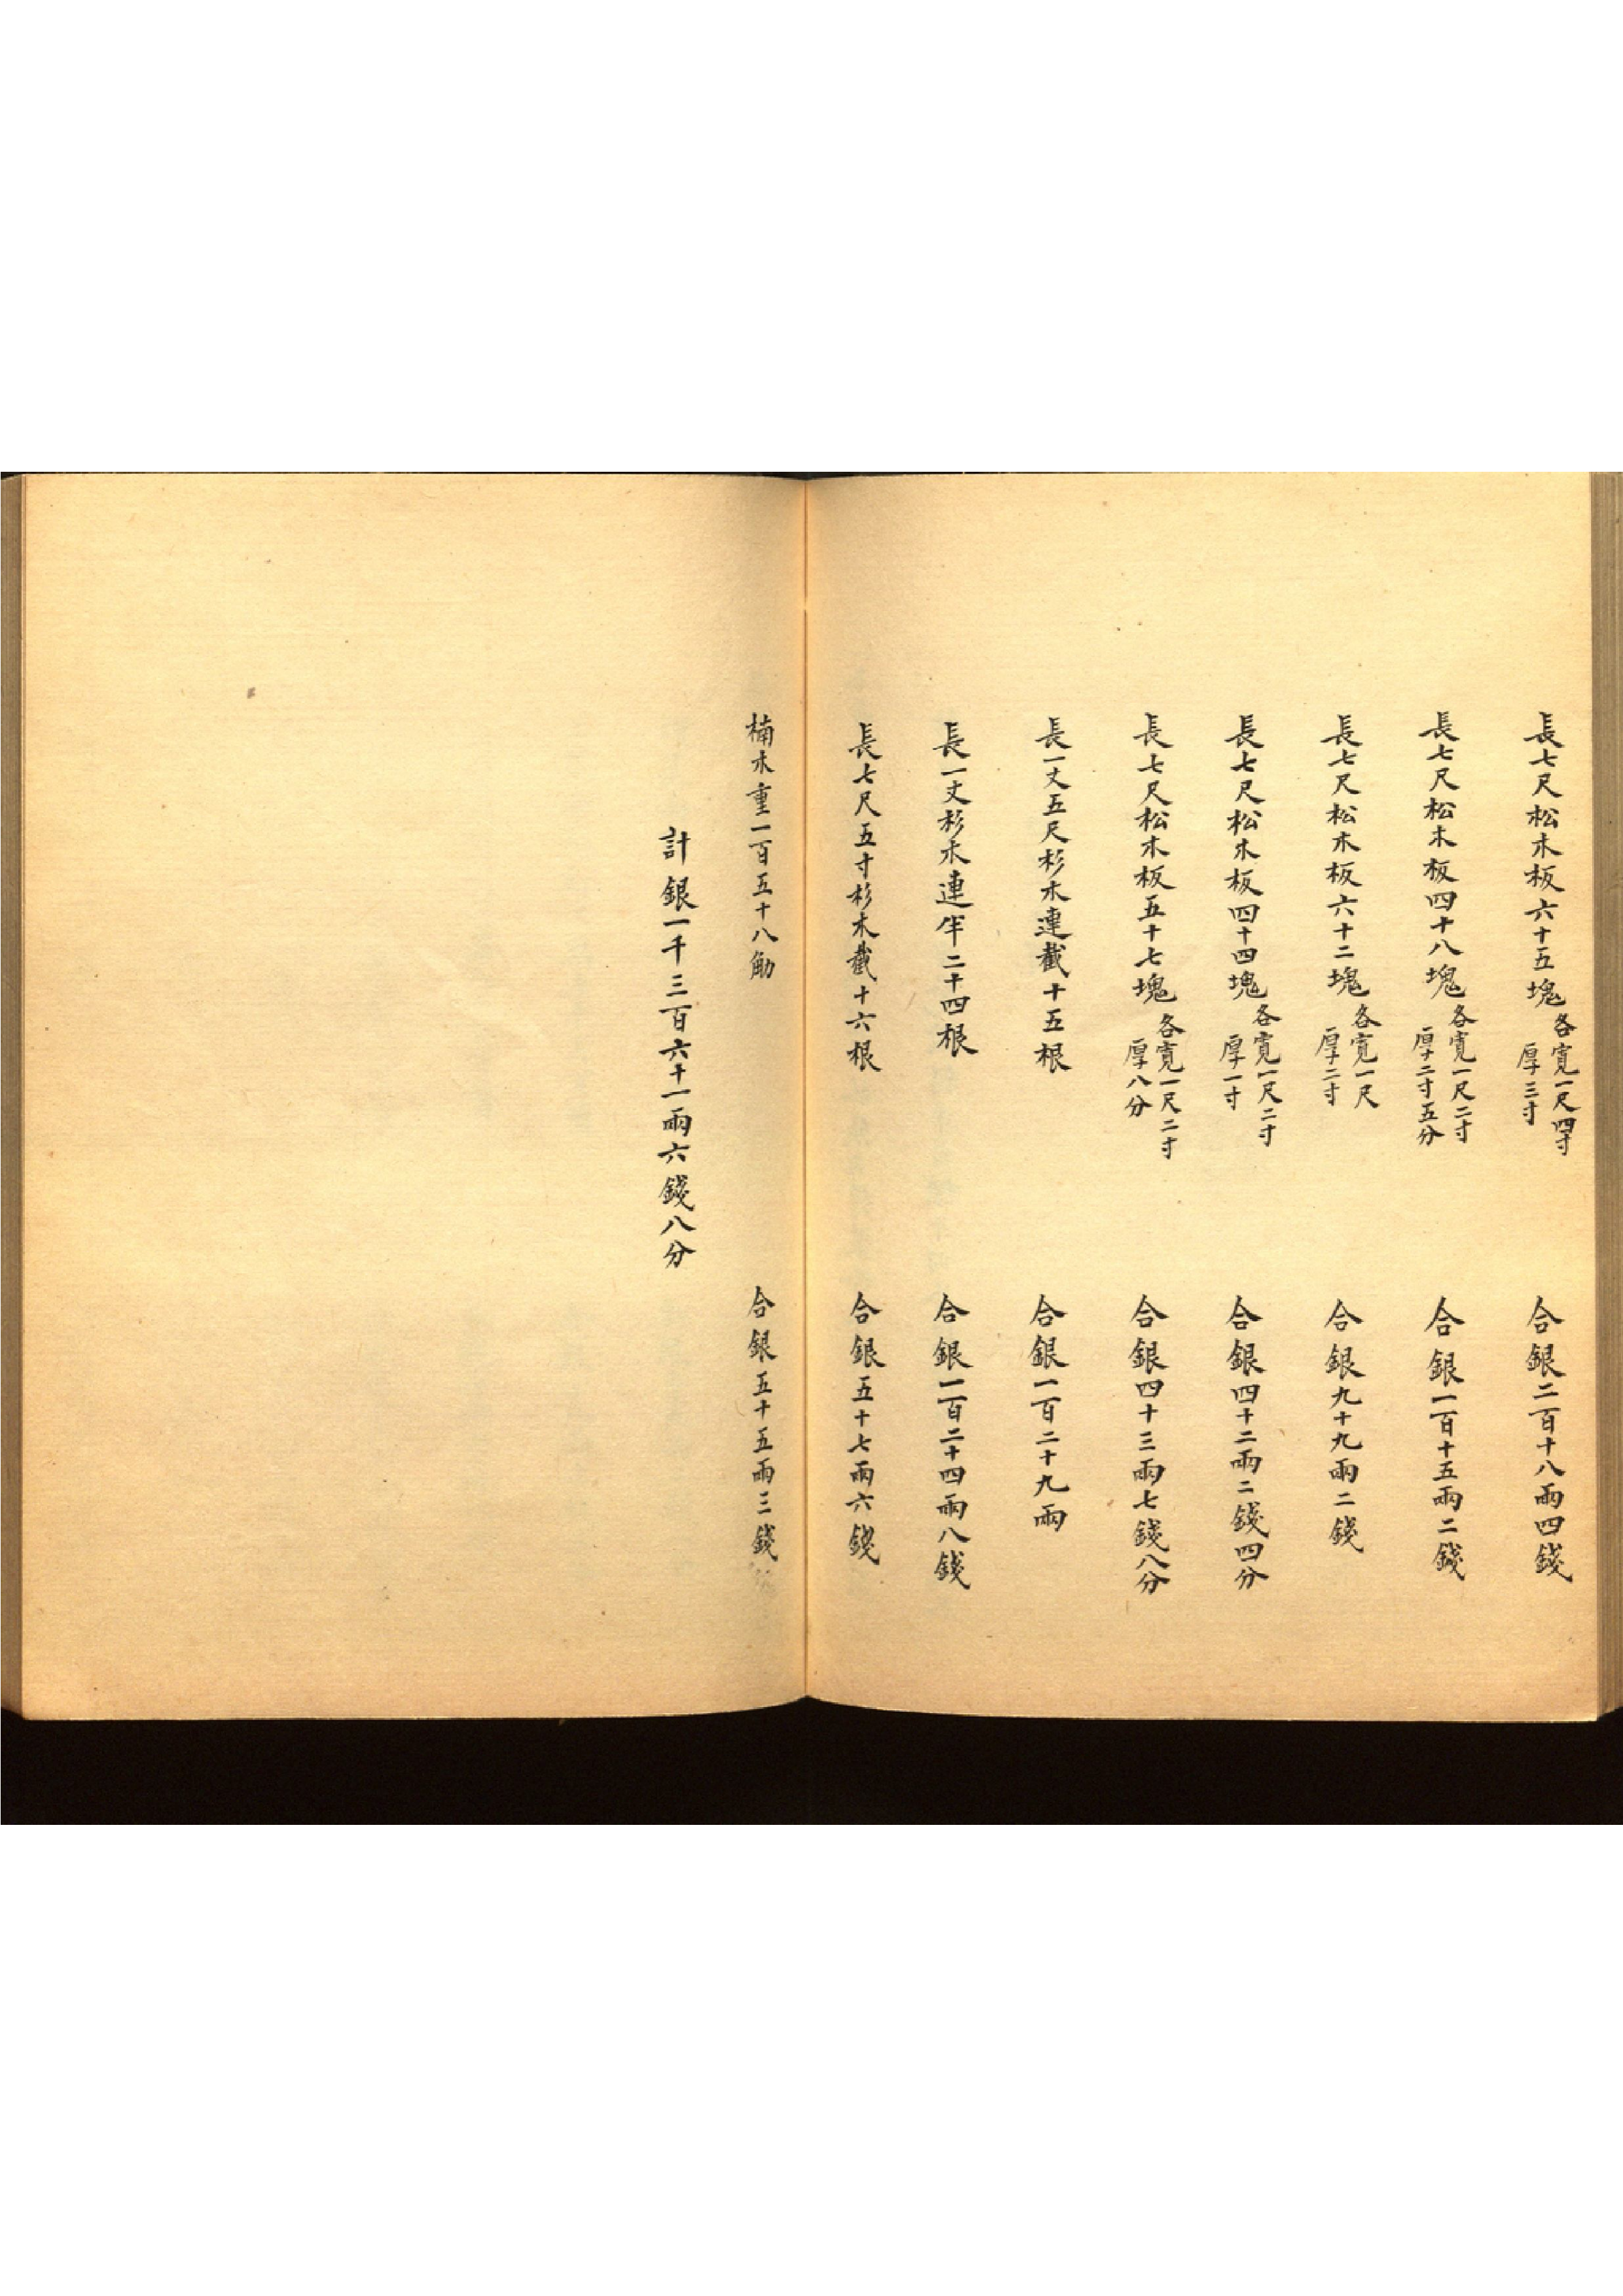 長七尺松木板六十五塊 各寬一尺四寸 厚三寸 合銀二百十八兩四錢
長七尺松木板四十八塊 各寬一尺二寸 厚二寸五分 合銀一百十五兩二錢
長七尺松木板六十二塊 各寬一尺 厚二寸 合銀九十九兩二錢
長七尺松木板四十四塊 各寬一尺二寸 厚一寸 合銀四十二兩二錢四分
長七尺松木板五十七塊 各寬一尺二寸 厚八分 合銀四十三兩七錢八分
長一丈五尺杉木連截十五根 合銀一百二十九兩
長一丈杉木連半二十四根 合銀一百二十四兩八錢
長七尺五寸杉木截十六根 合銀五十七兩六錢
楠木重一百五十八觔 合銀五十五兩三錢
計銀一千三百六十一兩六錢八分